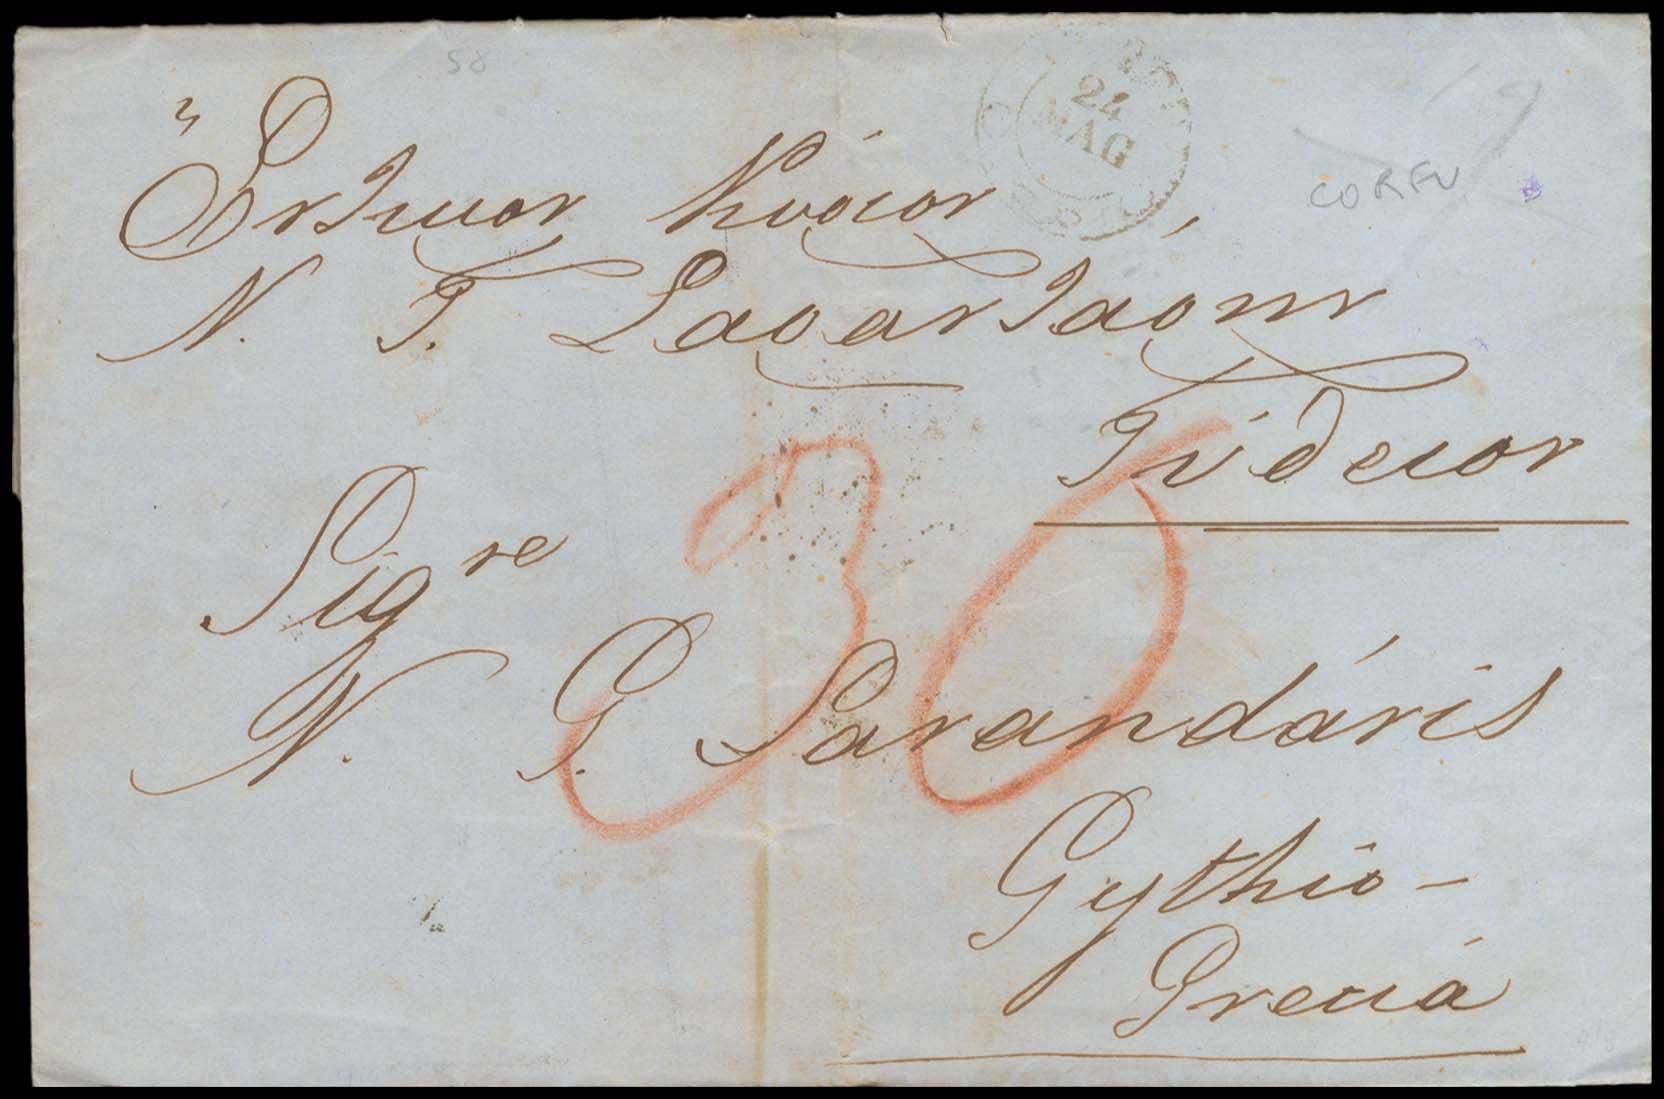 58
24
MAG
CORFU
Ἔντιμον Κύριον
Ν. Γ. Σαραντάρην
Γύθειον
30
Sig.re
N. G. Sarandáris
Gythio -
Grecia